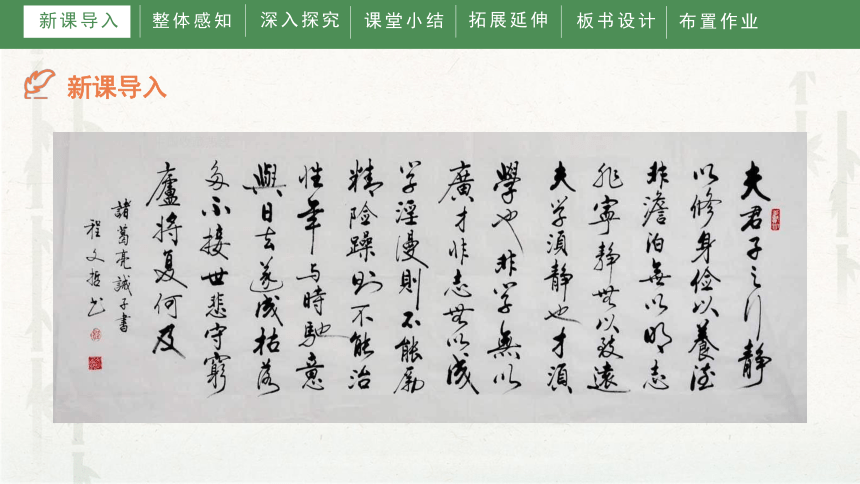 新课导入
整体感知
深入探究
课堂小结
拓展延伸
板书设计
布置作业
新课导入
夫君子之行静
以修身俭以養德
非澹泊無以明志
非寧静無以致遠
夫学須静也才須
學也非学無以
廣才非志無以成
学淫漫則不能励
精险躁則不能治
性年与時馳意
與日去遂成枯落
多不接世悲守窮
廬將复何及
諸葛亮誡子書
程文哲书